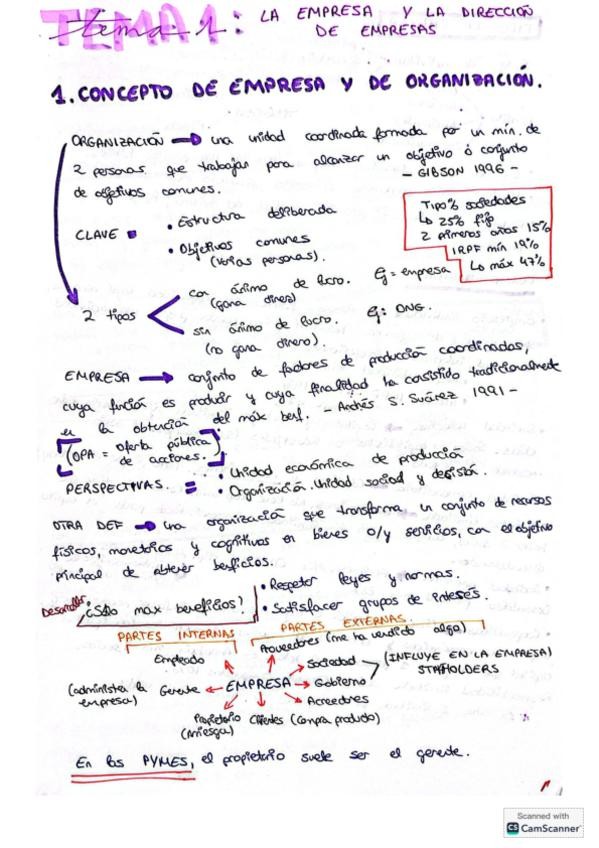 TEMA 1: LA EMPRESA Y LA DIRECCIÓN
DE EMPRESAS
1. CONCEPTO DE EMPRESA Y DE ORGANIZACIÓN.
ORGANIZACIÓN → una unidad coordinada formada por un mín. de
2 personas que trabajan para alcanzar un objetivo ó conjunto
de objetivos comunes. - GIBSON 1996 -
CLAVE
• Estructura deliberada
• Objetivos comunes
(varias personas).
TIPO % sociedades
↳ 25% fijo
2 primeros años 15%
IRPF mín 19%
↳ máx 47%
2 tipos
con ánimo de lucro. Ej = empresa
(gana dinero)
sin ánimo de lucro. Ej: ONG.
(no gana dinero).
EMPRESA → conjunto de factores de producción coordinados,
cuya función es producir y cuya finalidad ha consistido tradicionalmente
en la obtención del máx benf. - Andrés S. Suárez 1991 -
(OPA = oferta pública
de acciones.)
PERSPECTIVAS =
• Unidad económica de producción
• Organización. Unidad social y decisión.
OTRA DEF → una organización que transforma un conjunto de recursos
físicos, monetarios y cognitivos en bienes o/y servicios, con el objetivo
principal de obtener beneficios.
Desarrollar ¿Sólo máx beneficios?
• Respetar leyes y normas.
• Satisfacer grupos de interés.
PARTES INTERNAS PARTES EXTERNAS
Proveedores (me ha vendido algo)
Empleado Sociedad
(INFLUYE EN LA EMPRESA)
STAHOLDERS
(administra la empresa) Gerente ← EMPRESA → Gobierno
Acreedores
Propietario Clientes (compra producto)
(Arriesga)
En las PYMES, el propietario suele ser el gerente.
1
Scanned with
CS CamScanner